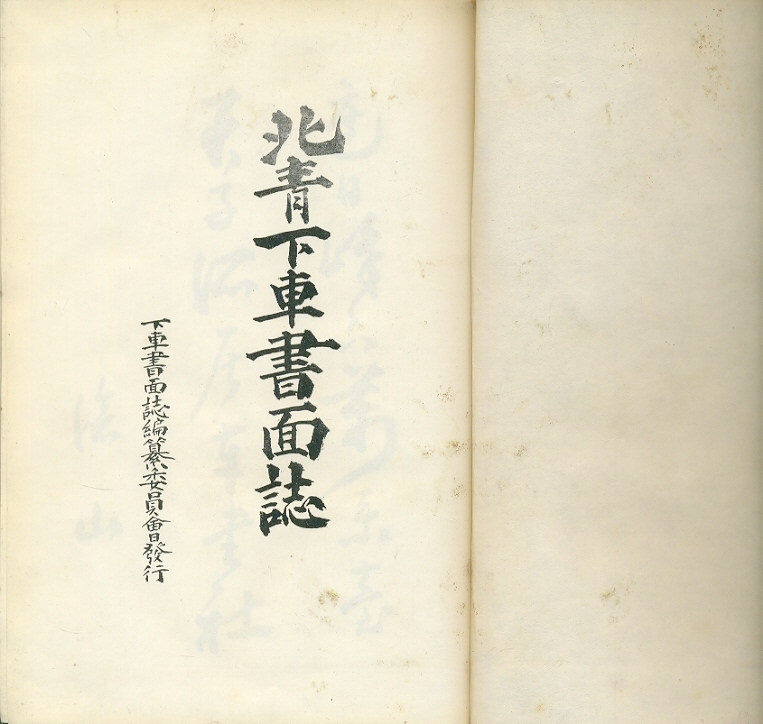 北青下車書面誌
下車書面誌編纂委員會發行